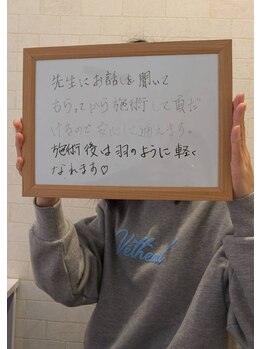 先生にお話しを聞いて
もらってから施術して頂だ
けるので安心して通えます。
施術後は羽のように軽く
なれます♡